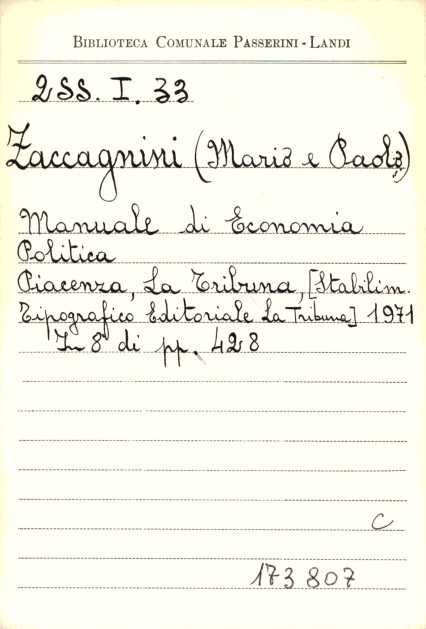 BIBLIOTECA COMUNALE PASSERINI - LANDI
2SS. I. 33
Zaccagnini (Mario e Paolo)
Manuale di Economia
Politica
Piacenza, La Tribuna, [Stabilim.
Tipografico Editoriale La Tribuna] 1971
In 8° di pp. 428
C
173 807